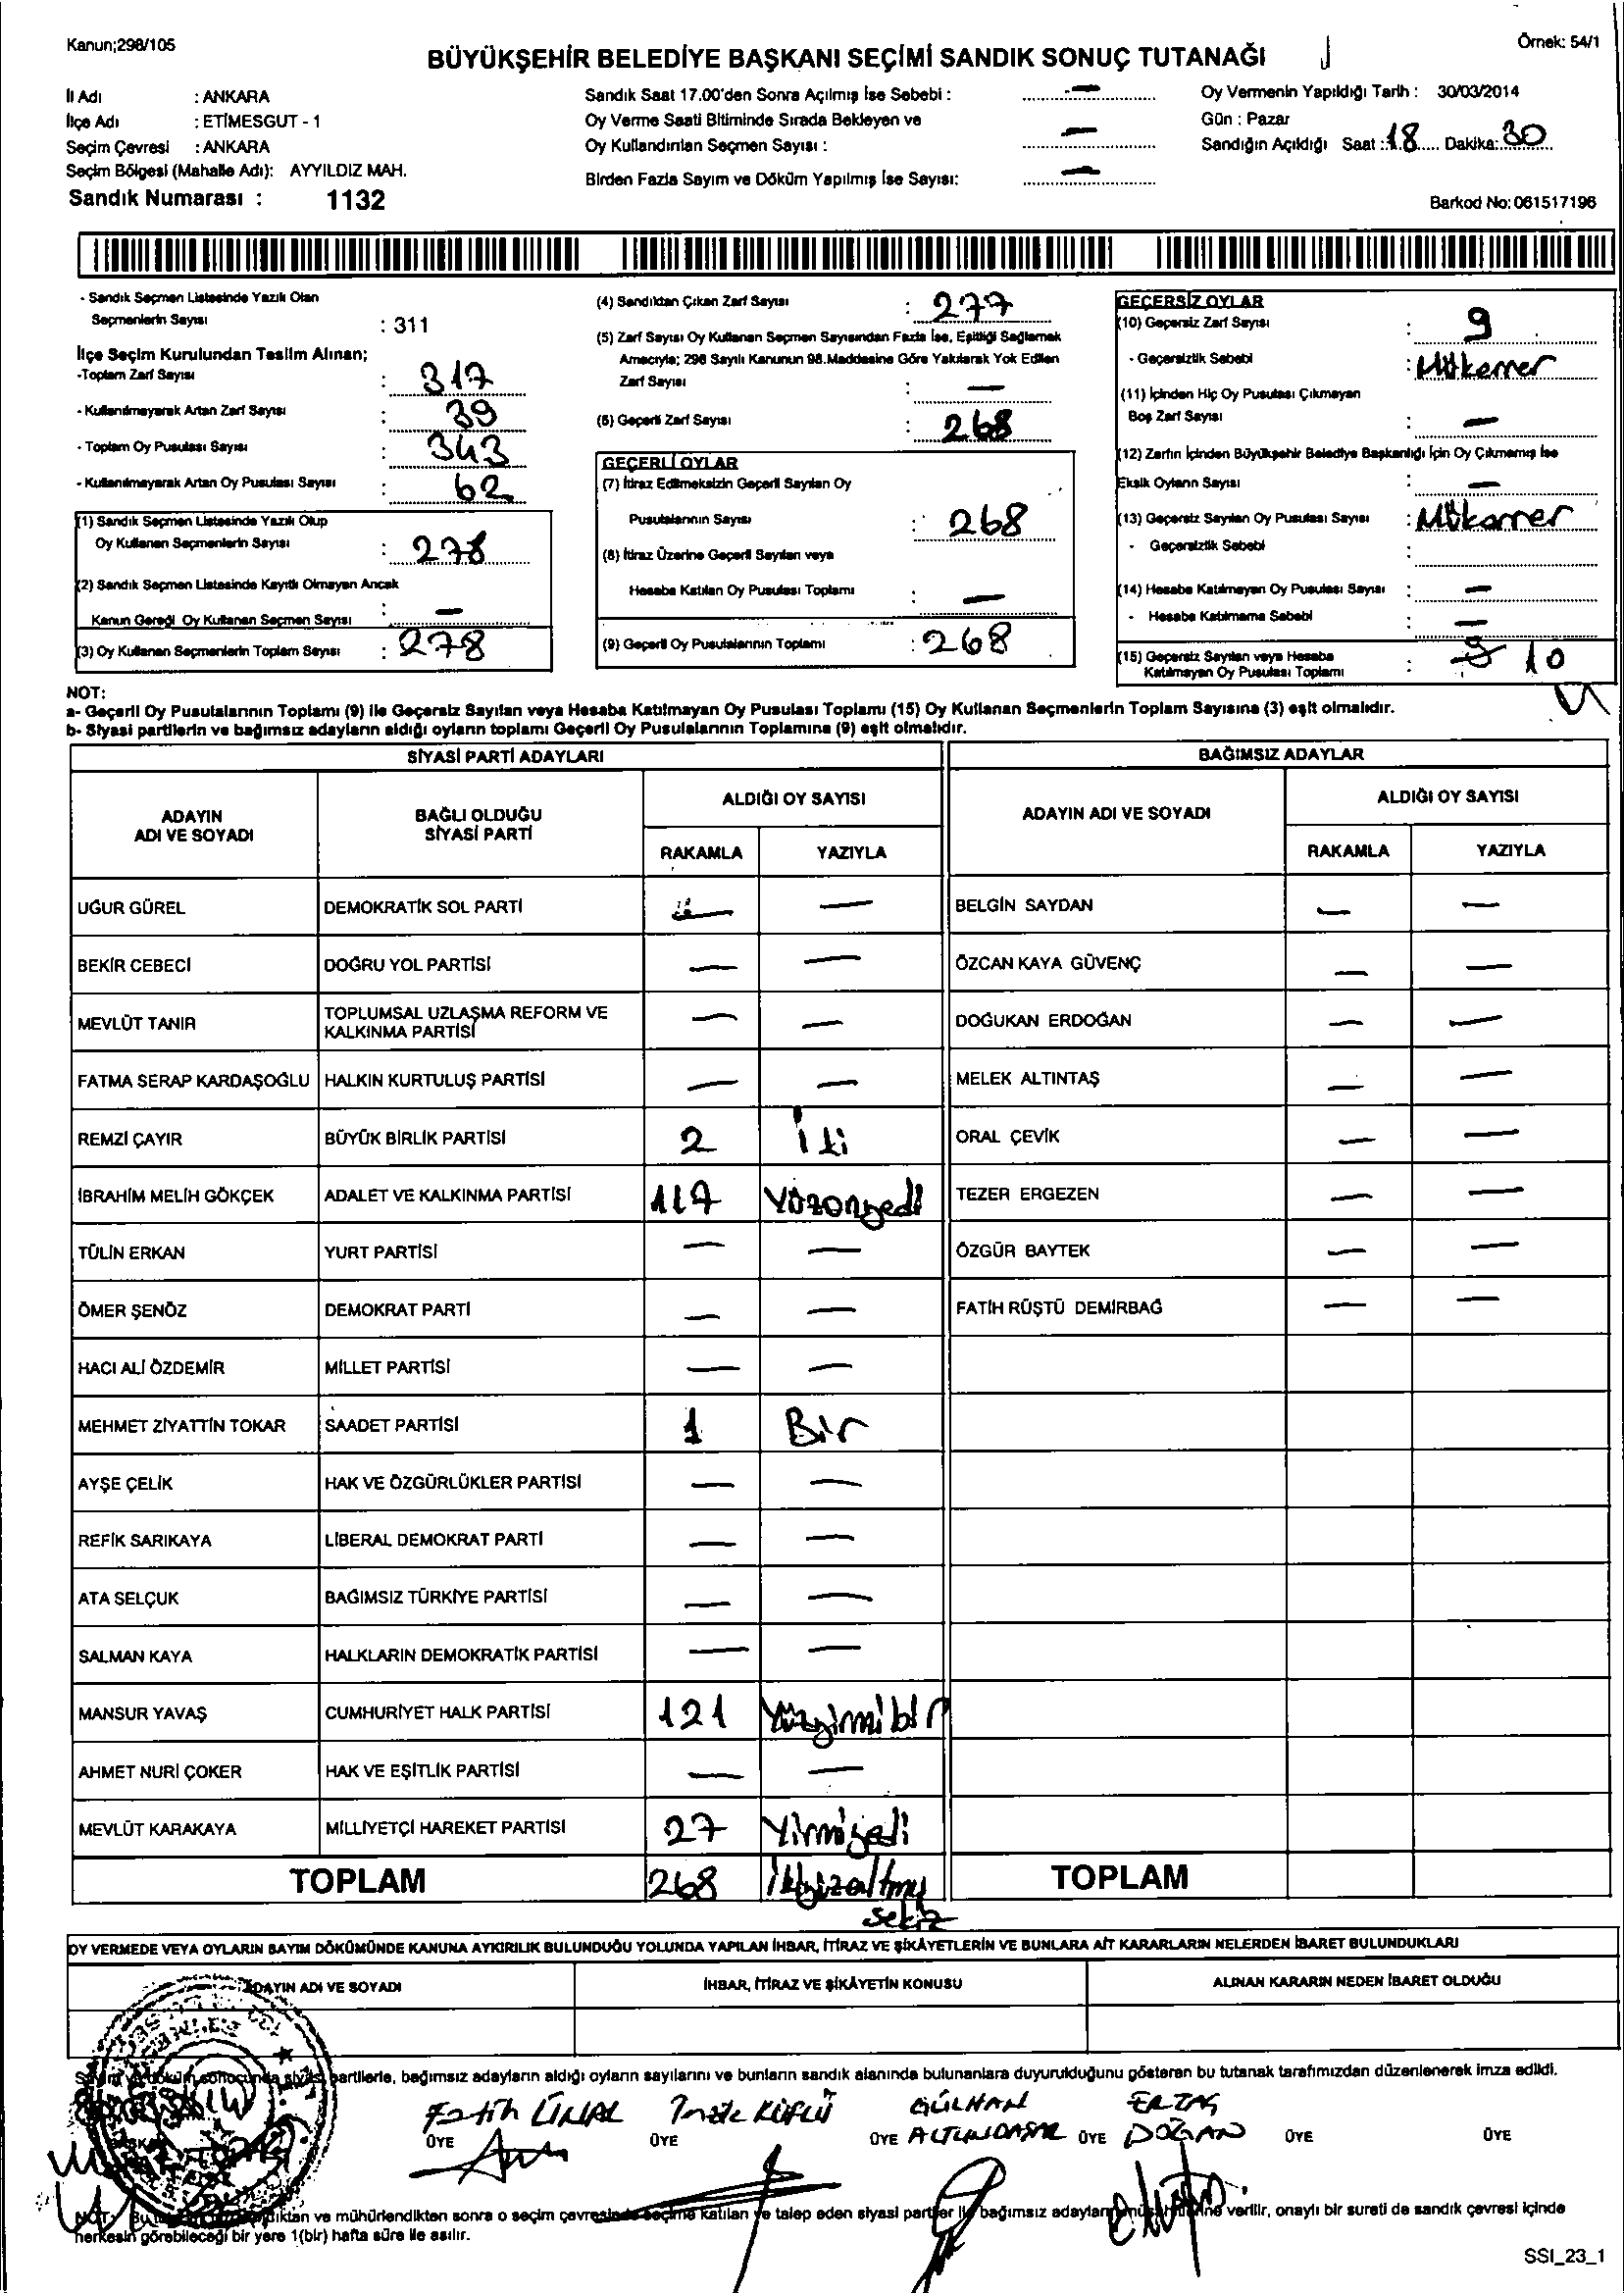 Kanun;298/105
Örnek: 54/1
BÜYÜKŞEHİR BELEDİYE BAŞKANI SEÇİMİ SANDIK SONUÇ TUTANAĞI
İl Adı : ANKARA
İlçe Adı : ETİMESGUT - 1
Seçim Çevresi : ANKARA
Seçim Bölgesi (Mahalle Adı): AYYILDIZ MAH.
Sandık Numarası : 1132
Sandık Saat 17.00'den Sonra Açılmış İse Sebebi : —
Oy Verme Saati Bitiminde Sırada Bekleyen ve
Oy Kullandırılan Seçmen Sayısı : —
Birden Fazla Sayım ve Döküm Yapılmış İse Sayısı: —
Oy Vermenin Yapıldığı Tarih : 30/03/2014
Gün : Pazar
Sandığın Açıldığı Saat : 18 Dakika: 30
Barkod No: 061517196
- Sandık Seçmen Listesinde Yazılı Olan
Seçmenlerin Sayısı : 311
İlçe Seçim Kurulundan Teslim Alınan;
-Toplam Zarf Sayısı : 317
- Kullanılmayarak Artan Zarf Sayısı : 39
- Toplam Oy Pusulası Sayısı : 343
- Kullanılmayarak Artan Oy Pusulası Sayısı : 62
(1) Sandık Seçmen Listesinde Yazılı Olup
Oy Kullanan Seçmenlerin Sayısı : 278
(2) Sandık Seçmen Listesinde Kayıtlı Olmayan Ancak
Kanun Gereği Oy Kullanan Seçmen Sayısı : —
(3) Oy Kullanan Seçmenlerin Toplam Sayısı : 278
(4) Sandıktan Çıkan Zarf Sayısı : 277
(5) Zarf Sayısı Oy Kullanan Seçmen Sayısından Fazla İse, Eşitliği Sağlamak
Amacıyla; 298 Sayılı Kanunun 98.Maddesine Göre Yakılarak Yok Edilen
Zarf Sayısı : —
(6) Geçerli Zarf Sayısı : 268
GEÇERLİ OYLAR
(7) İtiraz Edilmeksizin Geçerli Sayılan Oy
Pusulalarının Sayısı : 268
(8) İtiraz Üzerine Geçerli Sayılan veya
Hesaba Katılan Oy Pusulası Toplamı : —
(9) Geçerli Oy Pusulalarının Toplamı : 268
GEÇERSİZ OYLAR
(10) Geçersiz Zarf Sayısı : 9
- Geçersizlik Sebebi : Mükerrer
(11) İçinden Hiç Oy Pusulası Çıkmayan
Boş Zarf Sayısı : —
(12) Zarfın İçinden Büyükşehir Belediye Başkanlığı İçin Oy Çıkmamış İse
Eksik Oyların Sayısı : —
(13) Geçersiz Sayılan Oy Pusulası Sayısı : Mükerrer
- Geçersizlik Sebebi :
(14) Hesaba Katılmayan Oy Pusulası Sayısı : —
- Hesaba Katılmama Sebebi : —
(15) Geçersiz Sayılan veya Hesaba
Katılmayan Oy Pusulası Toplamı : 9 10
NOT:
a- Geçerli Oy Pusulalarının Toplamı (9) ile Geçersiz Sayılan veya Hesaba Katılmayan Oy Pusulası Toplamı (15) Oy Kullanan Seçmenlerin Toplam Sayısına (3) eşit olmalıdır.
b- Siyasi partilerin ve bağımsız adayların aldığı oyların toplamı Geçerli Oy Pusulalarının Toplamına (9) eşit olmalıdır.
SİYASİ PARTİ ADAYLARI
ADAYIN ADI VE SOYADI
BAĞLI OLDUĞU SİYASİ PARTİ
ALDIĞI OY SAYISI
RAKAMLA YAZIYLA
UĞUR GÜREL DEMOKRATİK SOL PARTİ — —
BEKİR CEBECİ DOĞRU YOL PARTİSİ — —
MEVLÜT TANIR TOPLUMSAL UZLAŞMA REFORM VE KALKINMA PARTİSİ — —
FATMA SERAP KARDAŞOĞLU HALKIN KURTULUŞ PARTİSİ — —
REMZİ ÇAYIR BÜYÜK BİRLİK PARTİSİ 2 İki
İBRAHİM MELİH GÖKÇEK ADALET VE KALKINMA PARTİSİ 117 Yüzonyedi
TÜLİN ERKAN YURT PARTİSİ — —
ÖMER ŞENÖZ DEMOKRAT PARTİ — —
HACI ALİ ÖZDEMİR MİLLET PARTİSİ — —
MEHMET ZİYATTİN TOKAR SAADET PARTİSİ 1 Bir
AYŞE ÇELİK HAK VE ÖZGÜRLÜKLER PARTİSİ — —
REFİK SARIKAYA LİBERAL DEMOKRAT PARTİ — —
ATA SELÇUK BAĞIMSIZ TÜRKİYE PARTİSİ — —
SALMAN KAYA HALKLARIN DEMOKRATİK PARTİSİ — —
MANSUR YAVAŞ CUMHURİYET HALK PARTİSİ 121 Yüzyirmibir
AHMET NURİ ÇOKER HAK VE EŞİTLİK PARTİSİ — —
MEVLÜT KARAKAYA MİLLİYETÇİ HAREKET PARTİSİ 27 Yirmiyedi
TOPLAM 268 İkiyüzaltmış
sekiz
BAĞIMSIZ ADAYLAR
ADAYIN ADI VE SOYADI
ALDIĞI OY SAYISI
RAKAMLA YAZIYLA
BELGİN SAYDAN — —
ÖZCAN KAYA GÜVENÇ — —
DOĞUKAN ERDOĞAN — —
MELEK ALTINTAŞ — —
ORAL ÇEVİK — —
TEZER ERGEZEN — —
ÖZGÜR BAYTEK — —
FATİH RÜŞTÜ DEMİRBAĞ — —
TOPLAM
OY VERMEDE VEYA OYLARIN SAYIM DÖKÜMÜNDE KANUNA AYKIRILIK BULUNDUĞU YOLUNDA YAPILAN İHBAR, İTİRAZ VE ŞİKÂYETLERİN VE BUNLARA AİT KARARLARIN NELERDEN İBARET BULUNDUKLARI
ADAYIN ADI VE SOYADI
İHBAR, İTİRAZ VE ŞİKÂYETİN KONUSU
ALINAN KARARIN NEDEN İBARET OLDUĞU
partilerle, bağımsız adayların aldığı oyların sayılarını ve bunların sandık alanında bulunanlara duyurulduğunu gösteren bu tutanak tarafımızdan düzenlenerek imza edildi.
Fatih ÜNAL
GÜLHAN
ERTAŞ
ÜYE ÜYE ÜYE ÜYE DOĞAN ÜYE ÜYE
ve mühürlendikten sonra o seçim çevresinde seçime katılan ve talep eden siyasi partiler bağımsız verilir, onaylı bir sureti de sandık çevresi içinde
herkesin görebileceği bir yere 1(bir) hafta süre ile asılır.
SSI_23_1